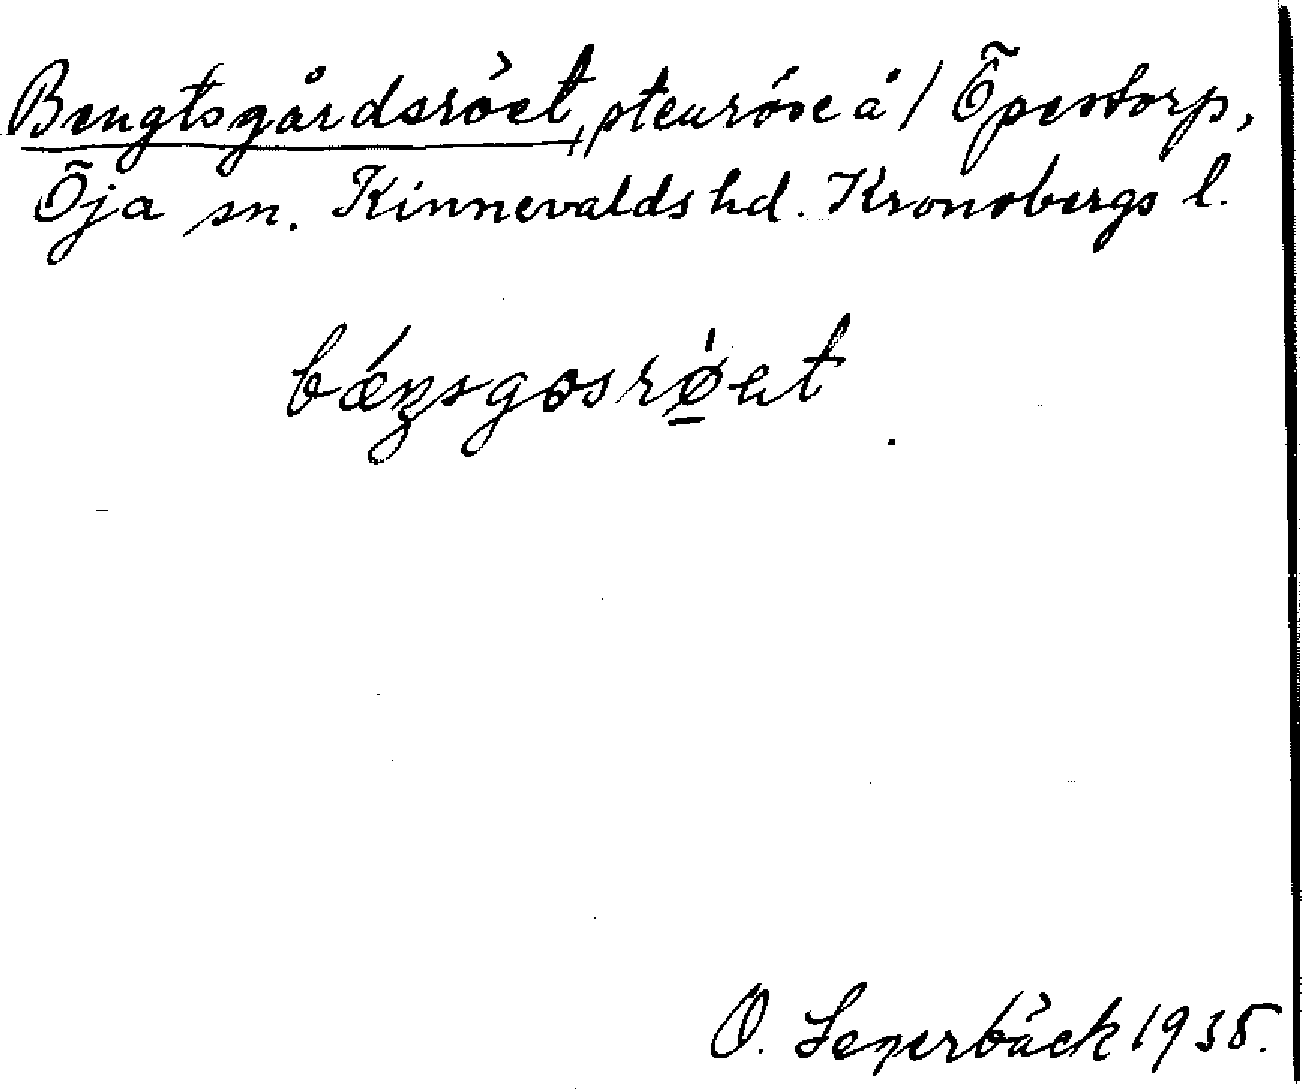 Bengtsgårdsröet, stenröse å / Öpestorp,
Öja sn. Kinnevalds hd. Kronobergs l.
bǽŋsgosrø̠et
O. 1935.